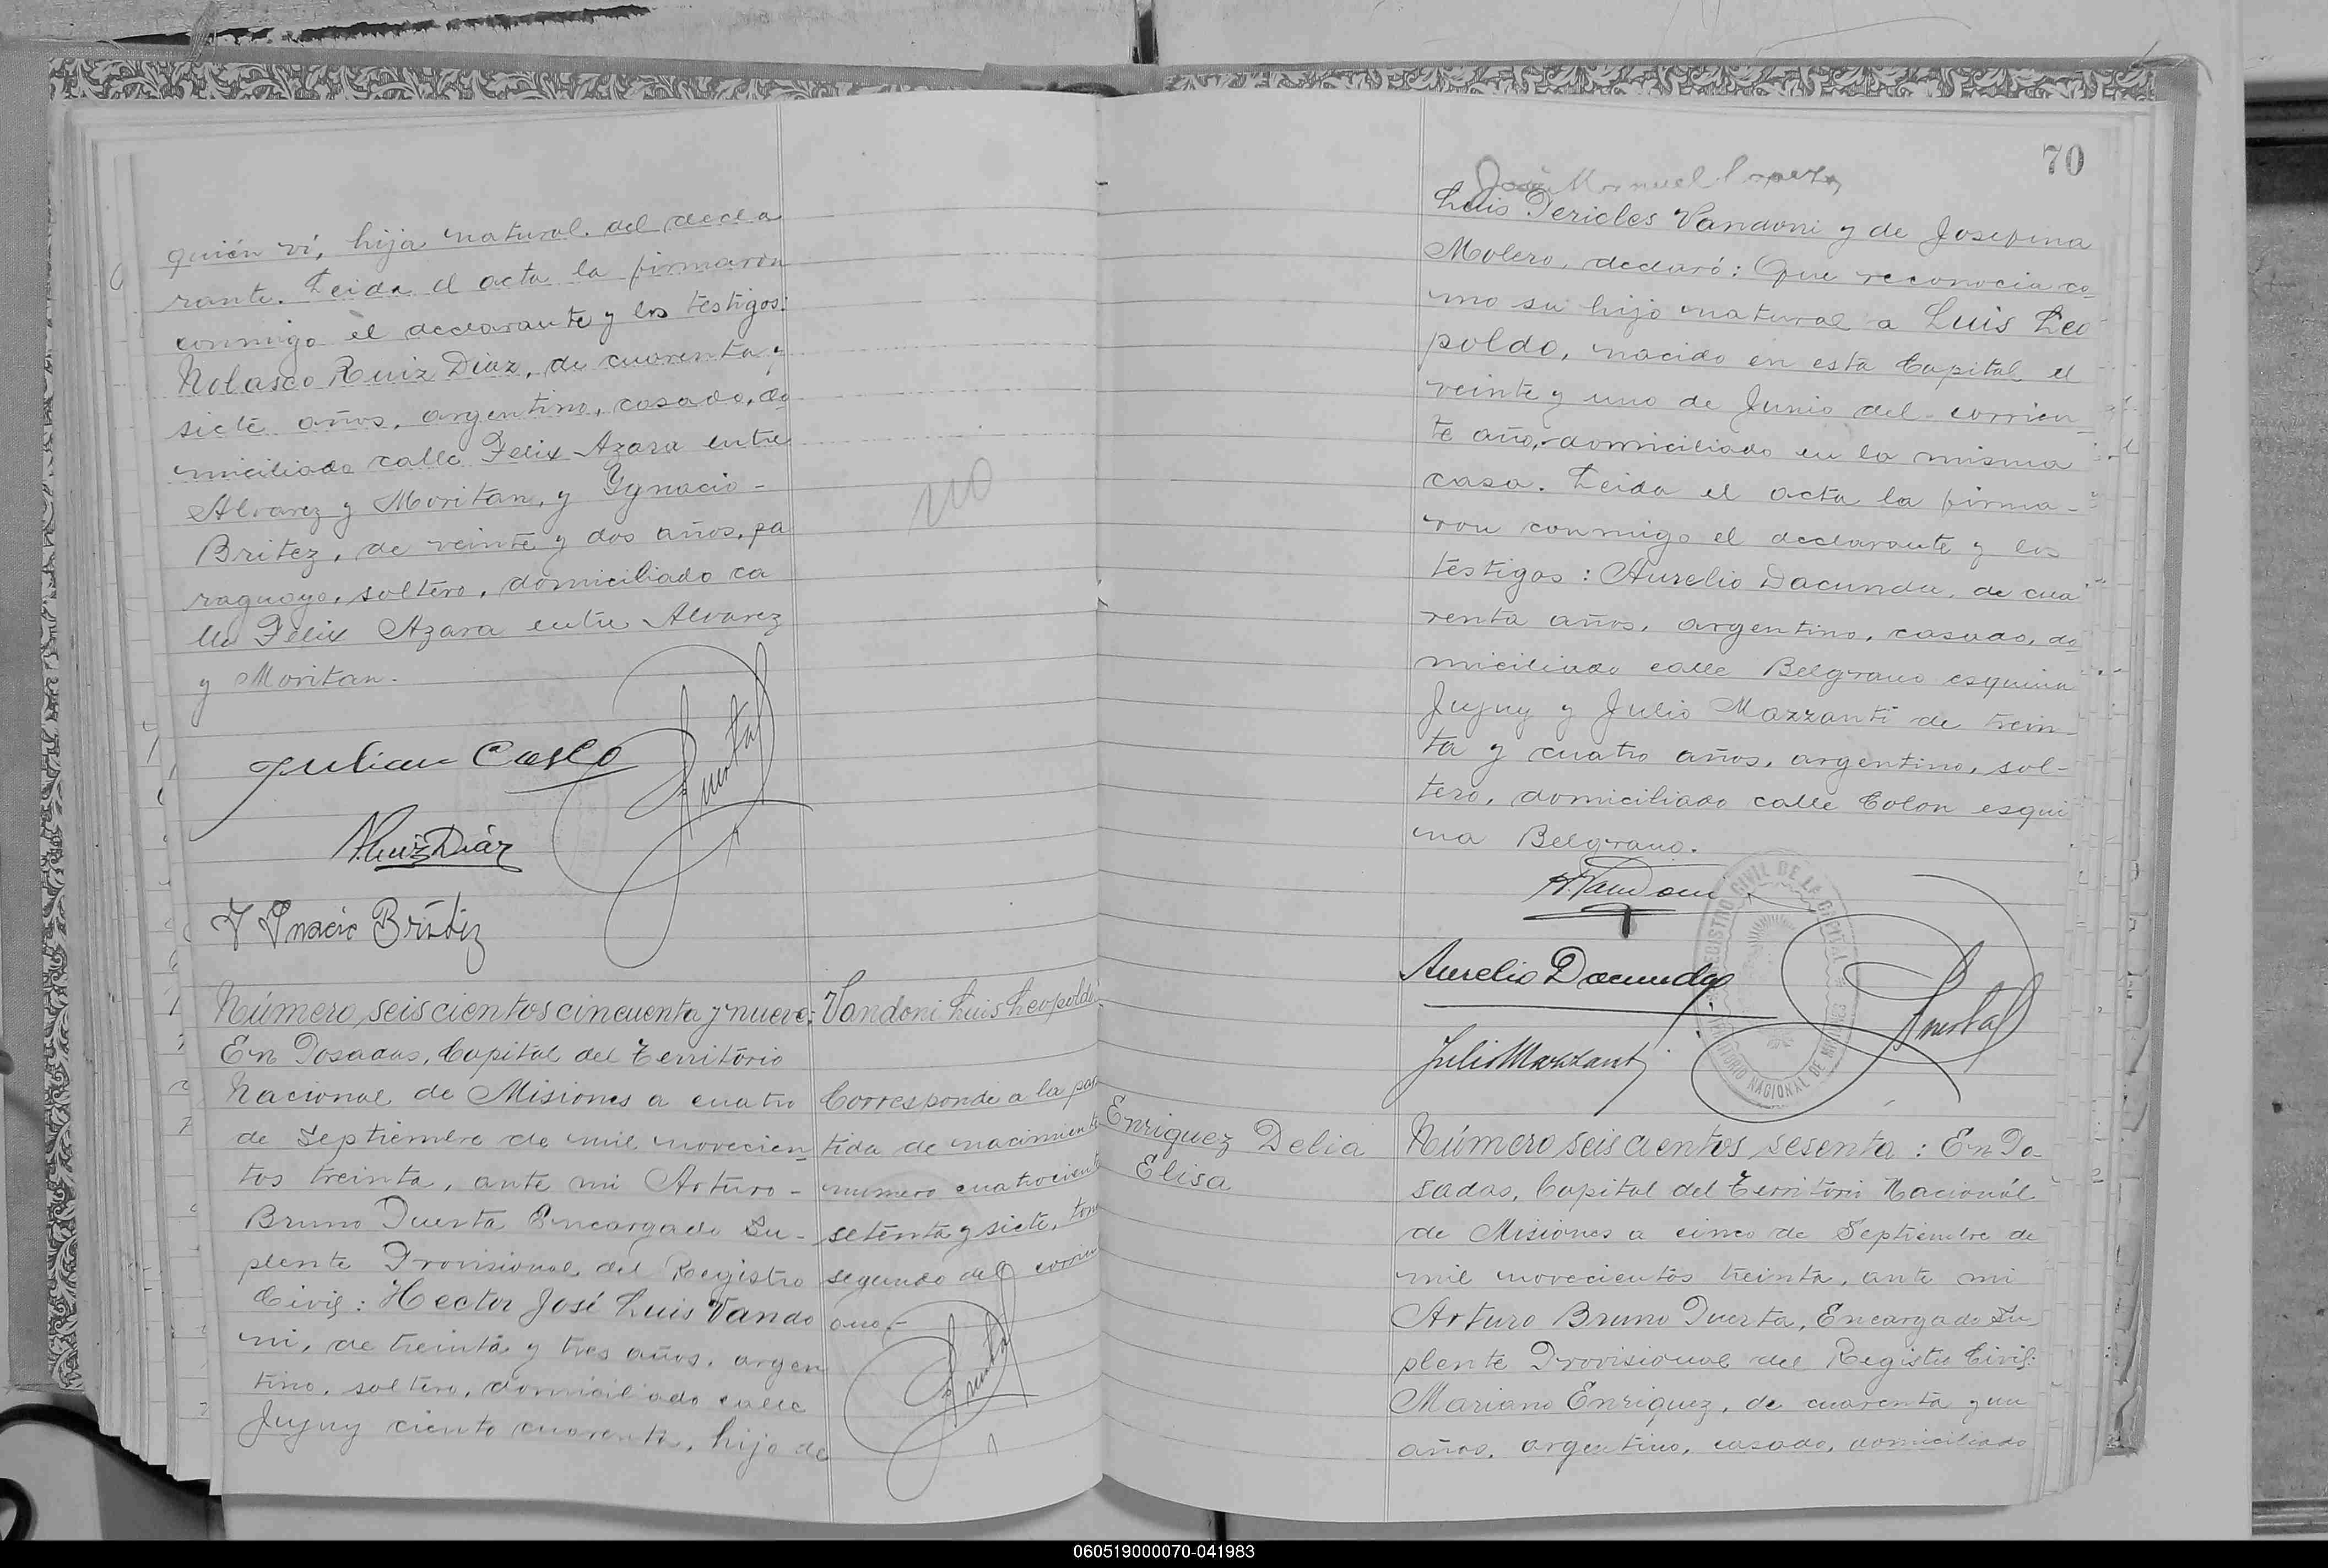 quién ví, hija natural del decla
rante. Leida el acta la firmaron
conmigo el declarante y los testigos:
Nolasco Ruiz Diaz, de cuarenta y
siete años, argentino, casado, do
miciliado calle Felix Azara entre
Alvarez y Moritan, y Ygnacio -
Britez, de veinte y dos años, pa
raguayo, soltero, domiciliado ca
lle Felix Azara entre Alvarez
y Moritan.
no
Julian Casco
N. Ruiz Diáz
Y Ynacio Brítez
Número seiscientos cincuenta y nueve:
En Posadas, Capital del Territorio
Nacional de Misiones a cuatro
de Septiembre de mil novecien
tos treinta, ante mi Arturo -
Bruno Puerta Encargado Su-
plente Provisional del Registro
Civil: Hector José Luis Vando
ni, de treinta y tres años, argen
tino, soltero, domiciliado calle
Jujuy ciento cuarenta, hijo de
Vandoni Luis Leopoldo
Corresponde a la par
tida de nacimiento
numero cuatrocientos
setenta y siete, tomo
segundo del corriente
ano.-
70
José Manuel Lopez
Luis Pericles Vandoni y de Josefina
Molero, declaró: Que reconocia co_
mo su hijo natural a Luis Leo
poldo, nacido en esta Capital el
veinte y uno de Junio del corrien_
te año, domiciliado en la misma
casa. Leida el acta la firma-
ron conmigo el declarante y los
testigos: Aurelio Dacunda, de cua
renta años, argentino, casado, do
miciliado calle Belgrano esquina
Jujuy y Julio Mazzanti de trein-
ta y cuatro años, argentino, sol-
tero, domiciliado calle Colon esqui
na Belgrano.
H. Vandoni
Aurelio Dacunda
Julio Mazzanti
REGISTRO CIVIL DE LA CAPITAL
TERRITORIO NACIONAL DE MISIONES
Enriquez Delia
Elisa
Número seiscientos sesenta: En Po-
sadas, Capital del Territorio Nacionál
de Misiones a cinco de Septiembre de
mil novecientos treinta, ante mi
Arturo Bruno Puerta, Encargado Su
plente Provisional del Registro Civil:
Mariano Enriquez, de cuarenta y un
años, argentino, casado, domiciliado
060519000070-041983